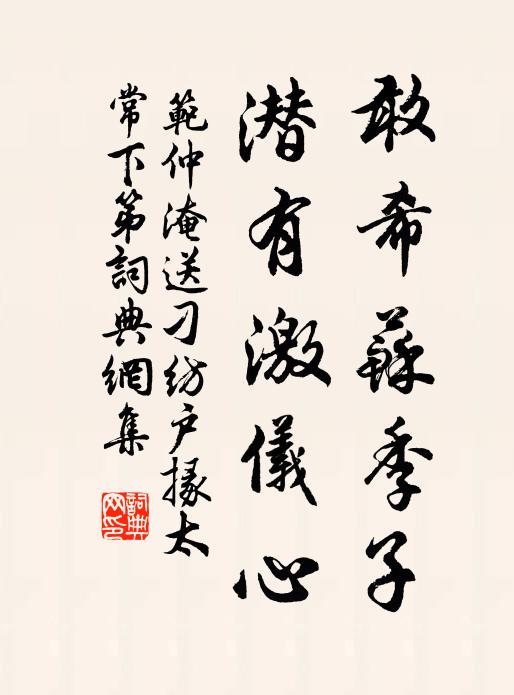 敢希蘇季子
潜有激儀心
範仲淹送刁紡户掾太
常下第詞典網集
詞典
网印